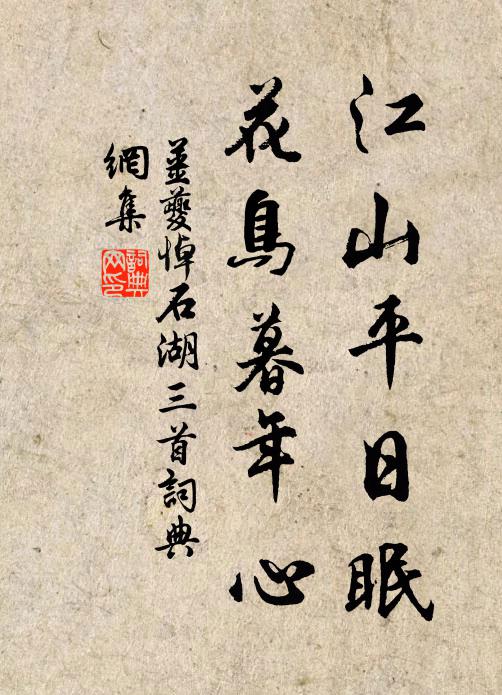 江山平日眠
花鳥暮年心
薑夔悼石湖三首詞典
網集
詞典
网印